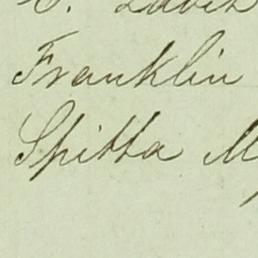 Franklin
Spitta M